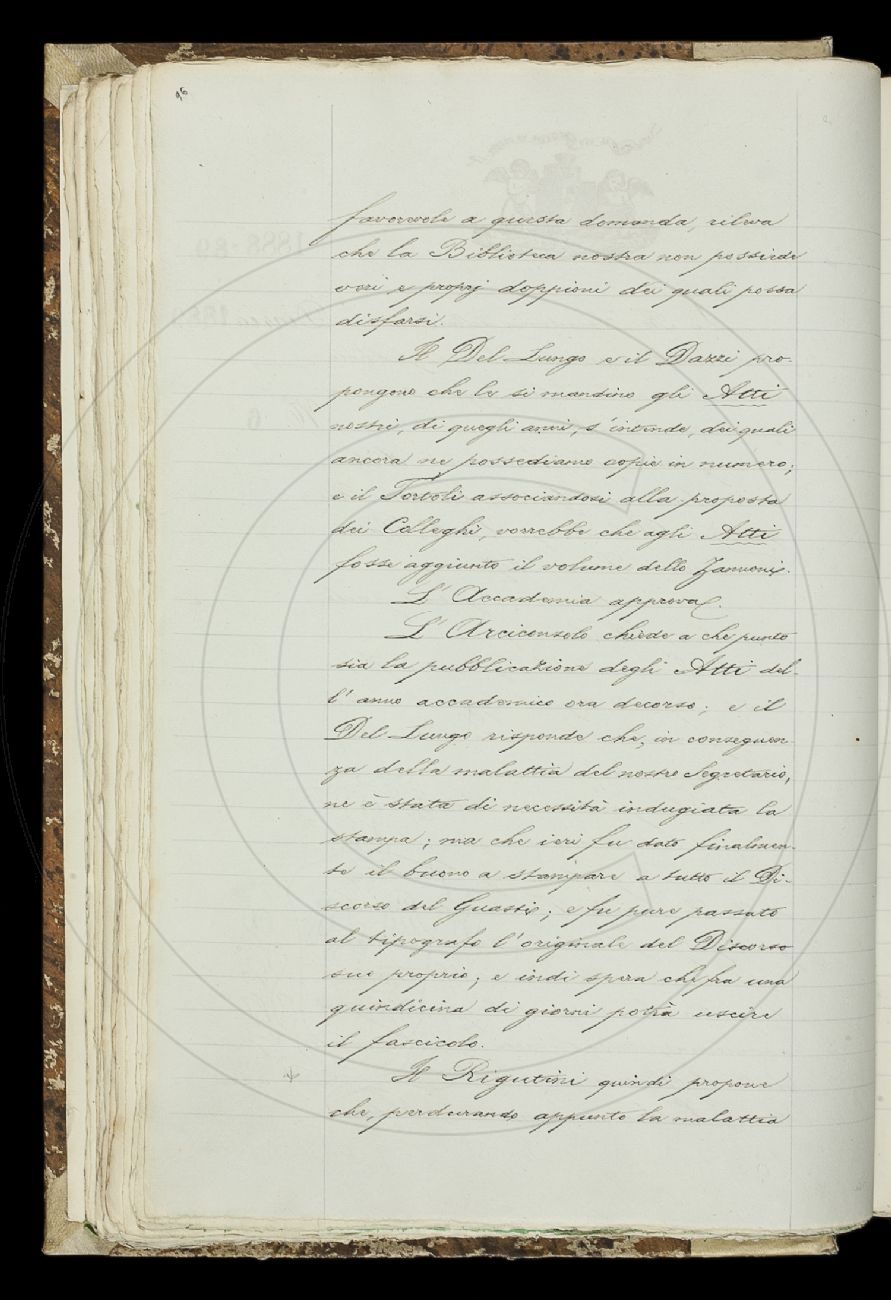 96
favorevole a questa domanda, rileva
che la Biblioteca nostra non possiede
veri e proprj doppioni dei quali possa
disfarsi.
Il Del Lungo e il Dazzi pro-
pongono che le si mandino gli Atti
nostri, di quegli anni, s'intende, dei quali
ancora ne possediamo copie in numero;
e il Tortoli associandosi alla proposta
dei Colleghi, vorrebbe che agli Atti
fosse aggiunto il volume dello Zannoni.
L'Accademia approva.
L'Arciconsolo chiede a che punto
sia la pubblicazione degli Atti del-
l'anno accademico ora decorso; e il
Del Lungo risponde che, in conseguen-
za della malattia del nostro Segretario,
ne è stata di necessità indugiata la
stampa; ma che ieri fu dato finalmen-
te il buono a stampare a tutto il Di-
scorso del Guasti; e fu pure passato
al tipografo l'originale del Discorso
suo proprio; e indi spera che fra una
quindicina di giorni potrà uscire
il fascicolo.
Il Rigutini quindi propone
che, perdurando appunto la malattia